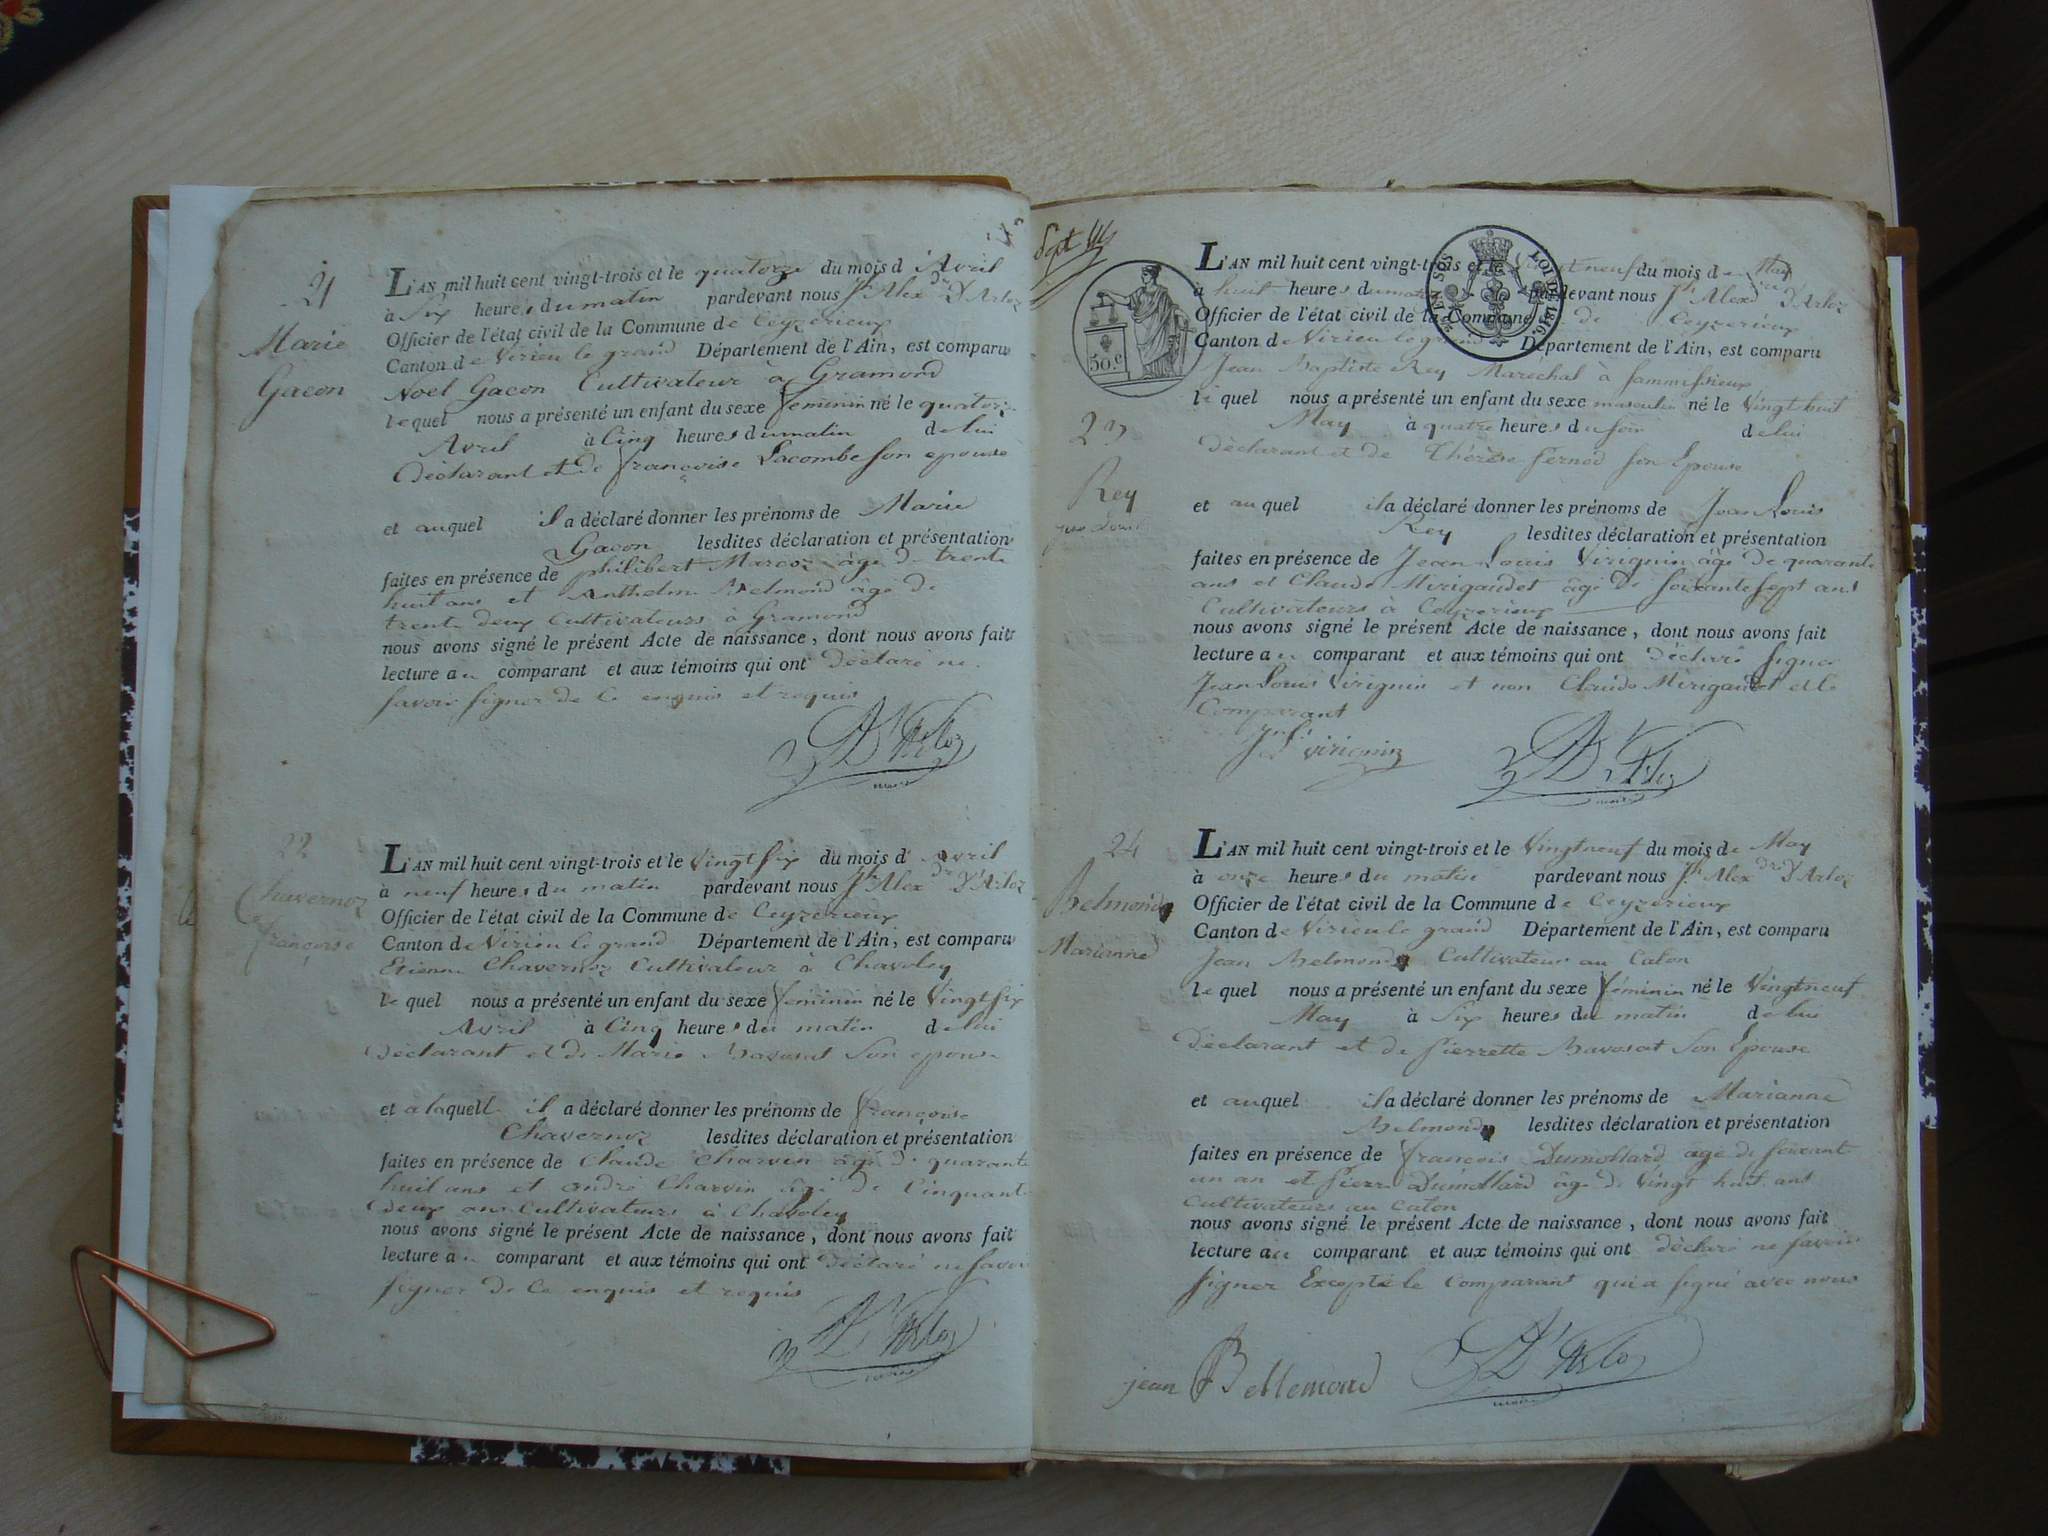 21
Marie
Gacon
L'AN mil huit cent vingt-trois et le quatorze du mois d'Avril
à Six heures du matin pardevant nous Jh Alexdre D'Arloz
Officier de l'état civil de la Commune de Ceyzerieux
Canton de Virieu le grand Département de l'Ain, est comparu
Noel Gacon Cultivateur à Gramond
lequel nous a présenté un enfant du sexe feminin né le quatorze
Avril à Cinq heures du matin de lui
Déclarant et de françoise Lacombe son epouse
et auquel il a déclaré donner les prénoms de Marie
Gacon lesdites déclaration et présentation
faites en présence de philibert Marcoz âgé de trente
huit ans et Anthelme Belmond âgé de
trente deux Cultivateurs à Gramond
nous avons signé le présent Acte de naissance, dont nous avons fait
lecture au comparant et aux témoins qui ont déclaré ne
savoir signer de ce enquis et requis
D'Arloz
maire
22
Chavernoz
françoise
L'AN mil huit cent vingt-trois et le Vingt six du mois d'Avril
à neuf heures du matin pardevant nous Jh Alexdre D'Arloz
Officier de l'état civil de la Commune de Ceyzerieux
Canton de Virieu le grand Département de l'Ain, est comparu
Etienne Chavernoz Cultivateur à Chavoley
lequel nous a présenté un enfant du sexe feminin né le Vingt six
Avril à Cinq heures du matin de lui
Déclarant et de Marie Bavosat son epouse
et a laquelle il a déclaré donner les prénoms de françoise
Chavernoz lesdites déclaration et présentation
faites en présence de Claude Charvin âgé de quarante
huit ans et andré Charvin âgé de Cinquante
Deux ans Cultivateurs à Chavoley
nous avons signé le présent Acte de naissance, dont nous avons fait
lecture au comparant et aux témoins qui ont Déclaré ne savoir
signer de Ce enquis et requis
D'Arloz
maire
Sept
50.c
23
Rey
jean Louis
L'AN mil huit cent vingt-trois et le Vingt neuf du mois de May
à huit heures du matin pardevant nous Jh Alexdre D'Arloz
EN SUS
LOI DE 1816.
Officier de l'état civil de la Commune de Ceyzerieux
Canton de Virieu le grand Département de l'Ain, est comparu
Jean Baptiste Rey Marechal à Sammissieux
lequel nous a présenté un enfant du sexe masculin né le Vingt huit
May à quatre heures du soir de lui
déclarant et de Thérèse Fernod son Epouse
et auquel il a déclaré donner les prénoms de Jean Louis
Rey lesdites déclaration et présentation
faites en présence de Jean Louis Virignin âgé de quarante
ans et Claude Mirigaudet âgé de soixante sept ans
Cultivateurs à Ceyzerieux
nous avons signé le présent Acte de naissance, dont nous avons fait
lecture au comparant et aux témoins qui ont déclaré signer
Jean Louis Virignin et non Claude Mirigaudet et le
Comparant
virignin
D'Arloz
maire
24
Belmond
Marianne
L'AN mil huit cent vingt-trois et le Vingt neuf du mois de May
à onze heures du matin pardevant nous Jh Alexdre D'Arloz
Officier de l'état civil de la Commune de Ceyzerieux
Canton de Virieu le grand Département de l'Ain, est comparu
Jean Belmond Cultivateur au Calon
lequel nous a présenté un enfant du sexe féminin né le Vingt neuf
May à Six heures du matin de lui
Déclarant et de Pierrette Bavosat son Epouse
et auquel il a déclaré donner les prénoms de Marianne
Belmond lesdites déclaration et présentation
faites en présence de françois Dumollard âgé de soixante
un an et Pierre Dumollard âgé de Vingt huit ans
Cultivateurs au Calon
nous avons signé le présent Acte de naissance, dont nous avons fait
lecture au comparant et aux témoins qui ont déclaré ne savoir
signer Excepté le Comparant qui a signé avec nous
jean Bellemond
D'Arloz
maire